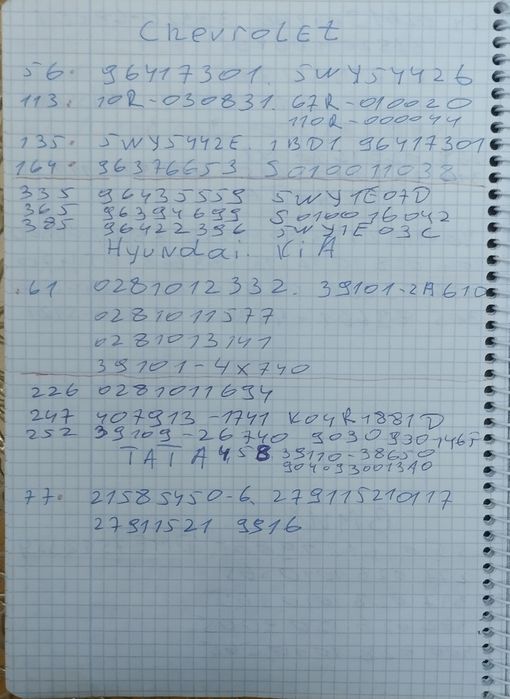 Chevrolet
56. 96417301. 5WY5442G
113. 10R-030831. 67R-010020
110R-000044
135. 5WY5442E. 1BD1. 96417301
164. 96376653 5010011038
335 96435559 5WY1E07D
365 96394699 50100 16042
385 96422396 5WY1E03C
Hyundai. KiA
61 0281012332. 39101-2A610
0281011577
0281013141
39101-4X740
226 0281011694
247 407913-1741 K04R1881D
252 39109-26740 9030930146F
TATA 458 39110-38650
9040930013A0
77. 21585450-6. 279115210117
27911521 9916